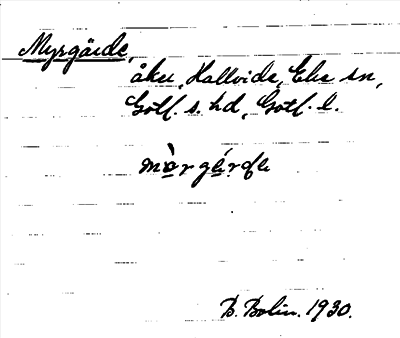 Myrgärde,
åker, Hallvide, Eke sn,
Gotl. s. hd, Gotl. l.
B. Bolin. 1930.